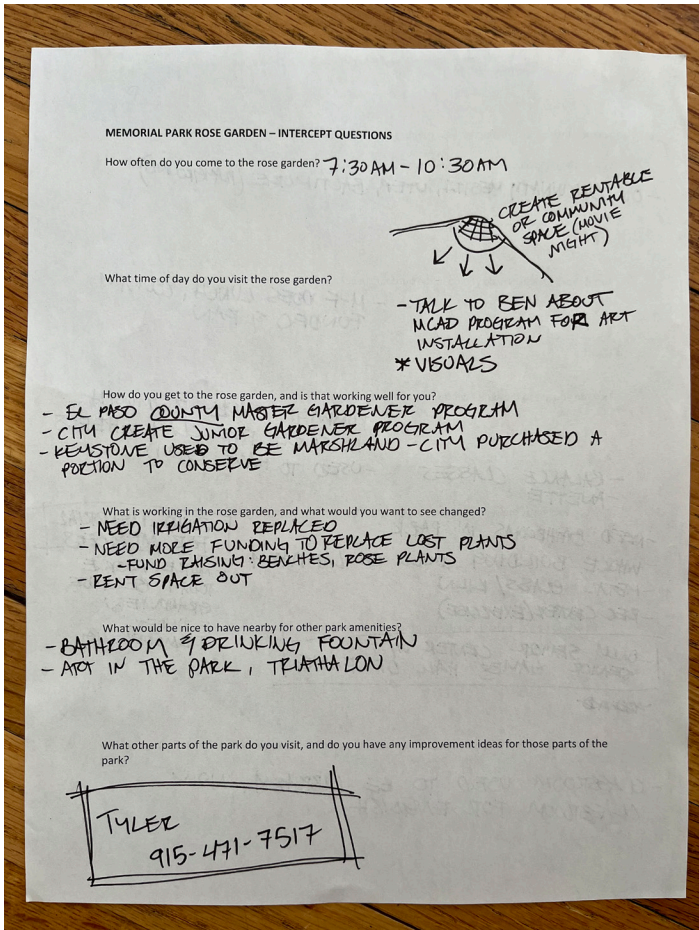 MEMORIAL PARK ROSE GARDEN – INTERCEPT QUESTIONS
How often do you come to the rose garden? 7:30AM - 10:30AM
CREATE RENTABLE
OR COMMUNITY
SPACE (MOVIE
NIGHT)
What time of day do you visit the rose garden?
- TALK TO BEN ABOUT
MCAD PROGRAM FOR ART
INSTALLATION
* VISUALS
How do you get to the rose garden, and is that working well for you?
- EL PASO COUNTY MASTER GARDENER PROGRAM
- CITY CREATE JUNIOR GARDENER PROGRAM
- KEYSTONE USED TO BE MARSHLAND - CITY PURCHASED A
PORTION TO CONSERVE
What is working in the rose garden, and what would you want to see changed?
- NEED IRRIGATION REPLACED
- NEED MORE FUNDING TO REPLACE LOST PLANTS
- FUND RAISING: BENCHES, ROSE PLANTS
- RENT SPACE OUT
What would be nice to have nearby for other park amenities?
- BATHROOM & DRINKING FOUNTAIN
- ART IN THE PARK, TRIATHALON
What other parts of the park do you visit, and do you have any improvement ideas for those parts of the
park?
TYLER
915-471-7517